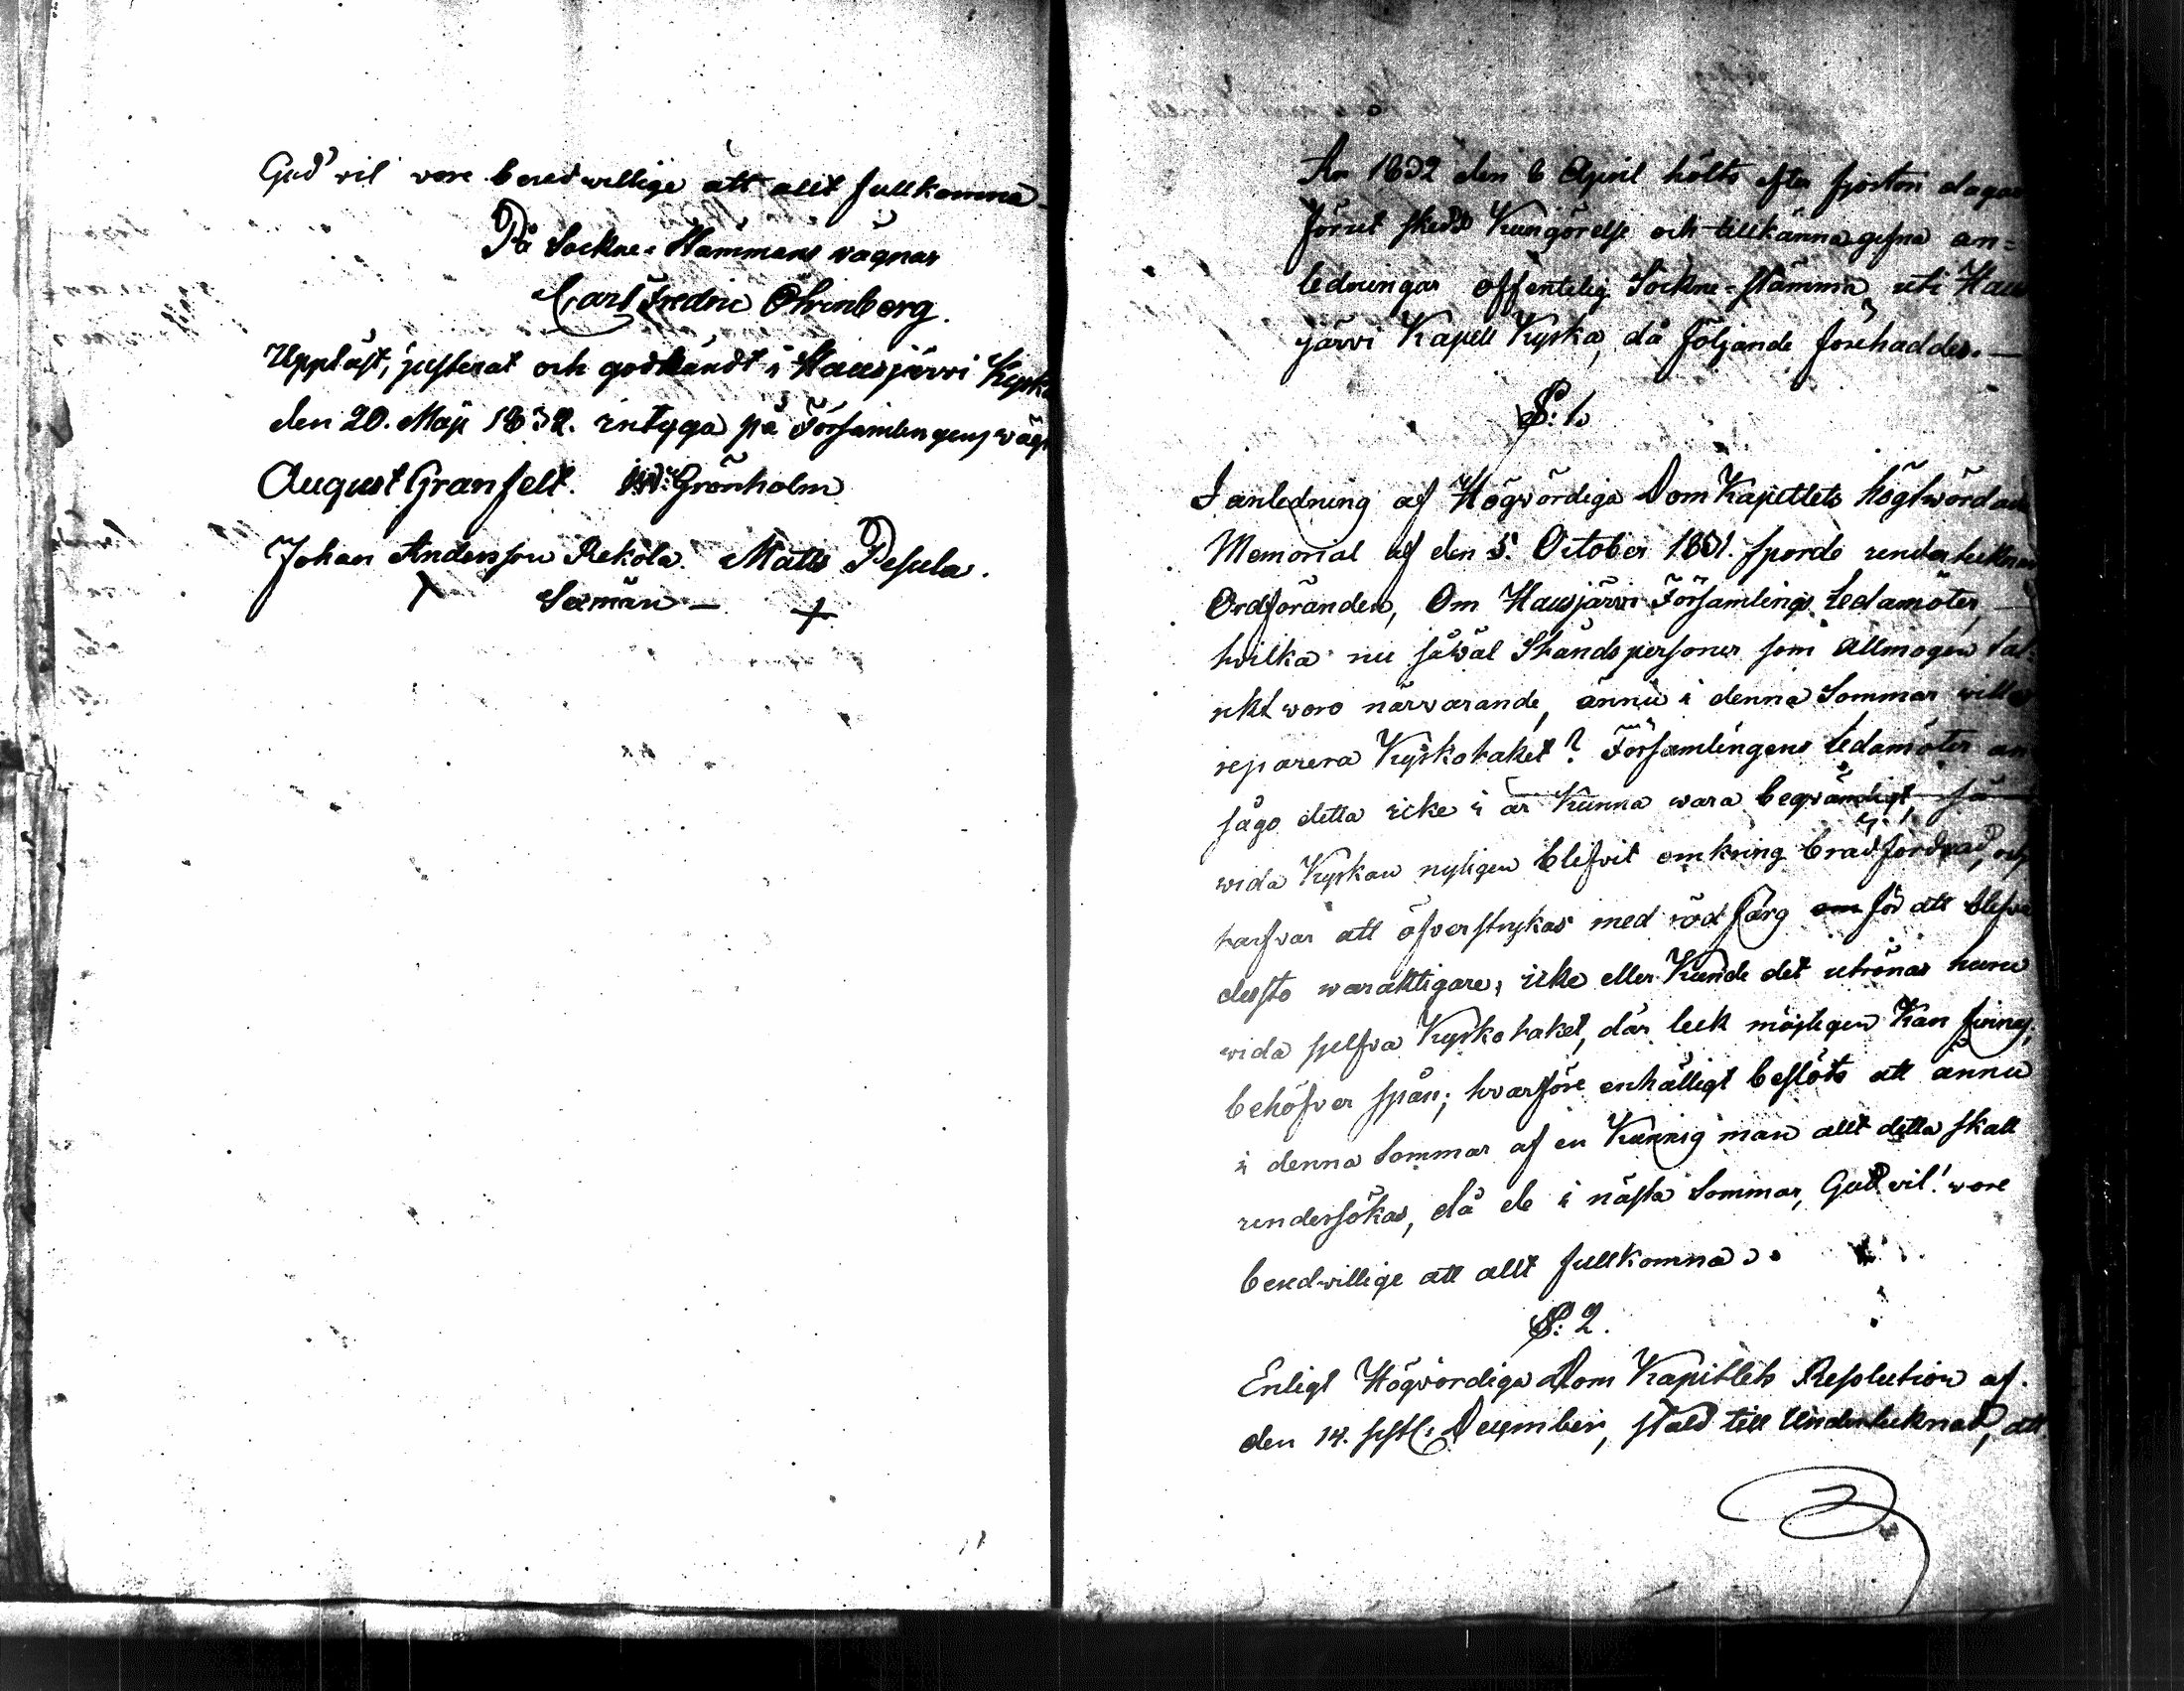 Gud vil vore beredwillige att allt fullkomna
På Sockne-Stämmans vägnar
Carl Fredric Öhrnberg.
Uppläst, justerat och godkändt i Hausjärvi Kyrka
den 20. Maji 1832. intyga på Församlingens wägn
August Granfelt. Grönholm
Johan Andersson Rekola. Matts Pesula.
Sexmän
År 1832 den 6 April hölts efter fjorton dagar
förut skedd Kungörelse och tillkänna gifna an=
ledningar offentelig Sockne-stämma uti Hau
järvi Kapell Kyrka, då följande förehaddes.—
§: 1.
I anledning af Högvördiga Dom Kapitlets högtwördan
Memorial af den 5. October 1831. sporde undertecknad
Ordföranden, Om Hausjärvi Församlings Ledamöter,
hvilka nu såwäl Ståndspersoner som Allmogen tal=
rikt woro närvarande, ännu i denna Sommar wille
reparera Kyrkotaket? Församlingens Ledamöter an
sågo detta icke i år Kunna wara beqvämligt, så
wida Kyrkan nyligen blefvit omkring brädfordrad, och
tarfvar att öfverstrykas med röd färg för att blifva
desto waraktigare, icke eller Kunde det utrönas huru
wida sjelfva Kyrkotaket, där leck möjligen Kan finnas,
behöfver spån; hvarföre enhälligt beslöts att ännu
i denna Sommar af en Kunnig man allt detta skall
undersökas, då de i nästa Sommar, Gud vil! wore
beredwillige att allt fullkomna.
§: 2.
Enligt Högvördiga Dom Kapitlets Resolution af
den 14. sistl: December, stäld till Undertecknad, att